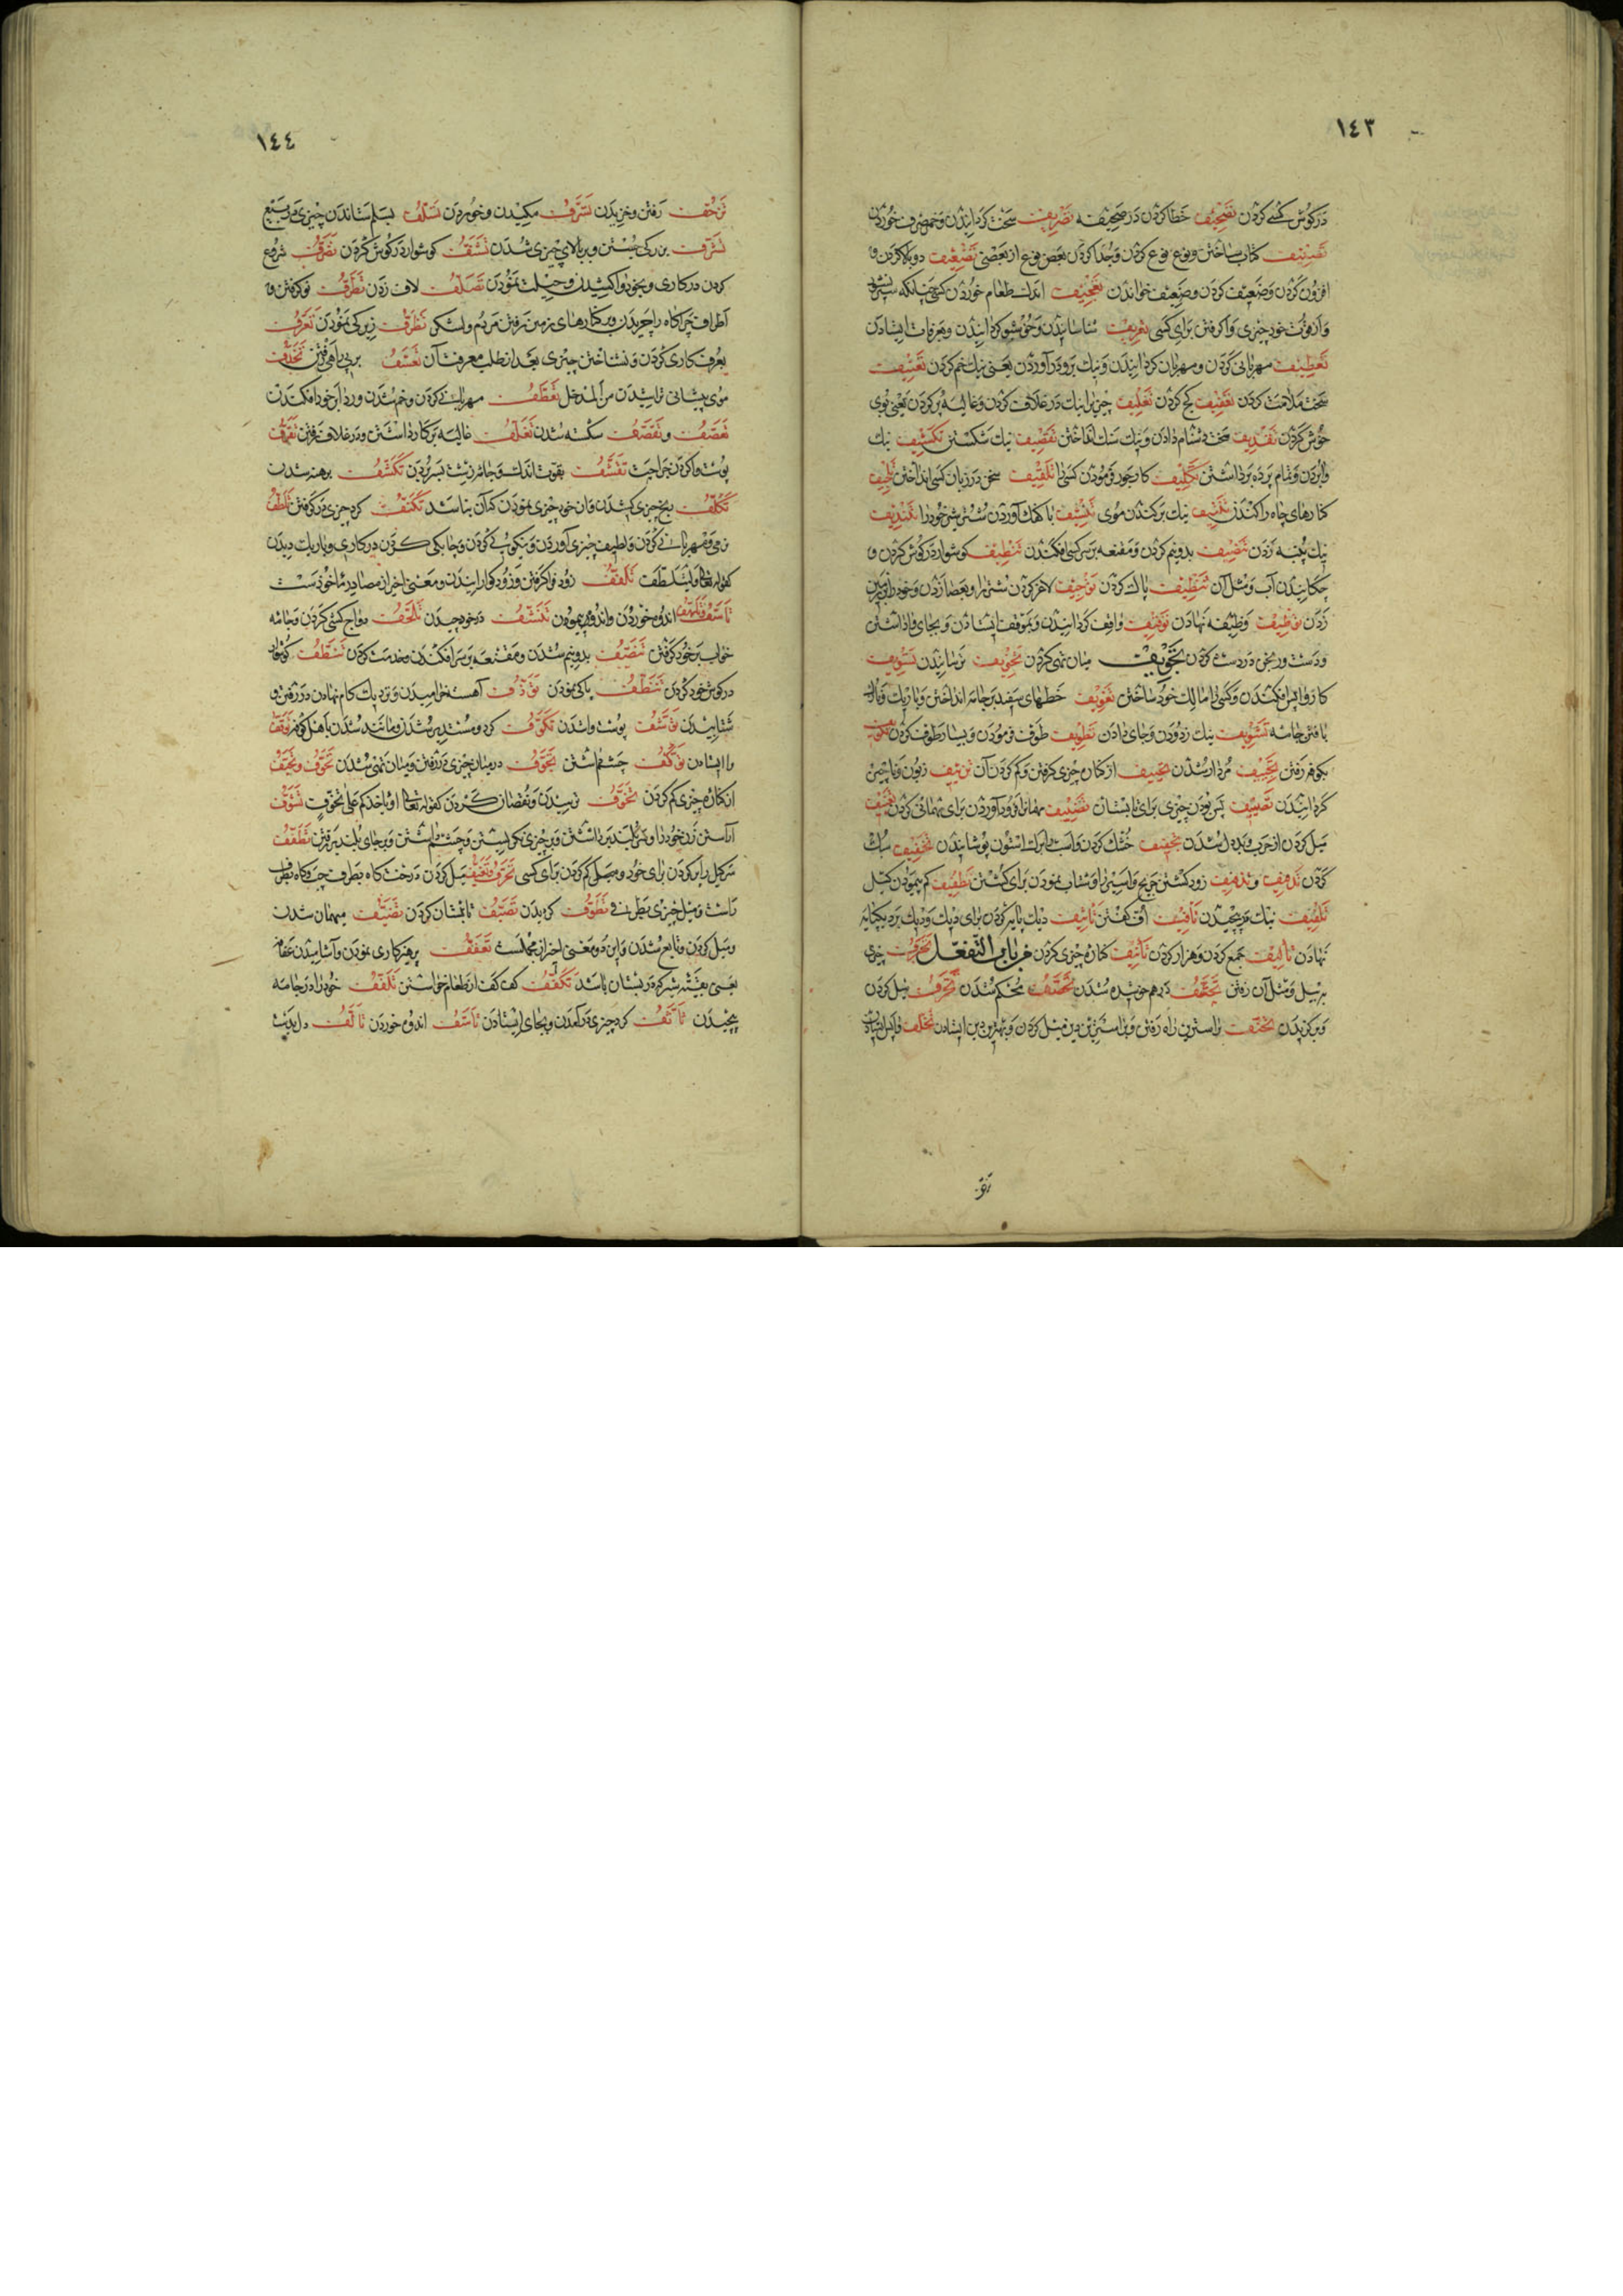 ١٤٣
در گوش کسی کردن تصحیف خطا کردن در صحیفه تصریف سخت گردانیدن و خمر صرف خوردن
تصنیف کتاب ساختن و نوع نوع کردن و جدا کردن بعض نوع از بعضی تضعیف دو بالا کردن و
افزون کردن و ضعیف کردن و ضعیف خواندن تعجیف اندک طعام خوردن کسی چنانکه سیر نشود
و از قوت خود چیزی واگرفتن برای کسی تعریف شناسانیدن و خوشبو گردانیدن و بعرفات ایستادن
تعطیف مهربانی کردن و مهربان گردانیدن و نیک فرود آوردن یعنی نیک خم کردن تعنیف
سخت ملامت کردن تعقیف کج کردن تغلیف چیزی را نیک در غلاف کردن و غالیه پر کردن یعنی بوی
خوش کردن تقذیف سخت دشنام دادن و نیک سنگ انداختن تقصیف نیک شکستن تکشیف نیک
وابردن و تمام پرده برداشتن تکلیف کار بجور فرمودن کسی را تلقیف سخن در زبان کسی انداختن تلجیف
کنارهای چاه را کندن تنتیف نیک برکندن موی تنشیف تندیف
نیک پنبه زدن تنصیف بدو نیم کردن و مقنعه بر سر کسی افکندن تنطیف گوشوار در گوش کردن و
چکانیدن آب و مثل آن تنظیف پاک کردن توجیف لاغر کردن شتر را
زدن توظیف وظیفه نهادن توقیف واقف گردانیدن و بموقف ایستادن و بجای واداشتن
و دست ورنجن در دست کردن تجویف میان تهی کردن تخویف ترسانیدن تسویف
کار واپس افکندن و کسی را مالک خود ساختن تفویف خطهای سفید بر جامه انداختن و باریک
بافتن جامه تشویف نیک زدودن و جای دادن تطویف طوف فرمودن و بسیار طوف کردن تکویف
بکوفه رفتن تجییف مردار شدن تحییف از کناره چیزی گرفتن و کم کردن آن تزییف زبون و ناچیز
گردانیدن تصییف بس بودن چیزی برای تابستان تضییف مهمان فرود آوردن برای مهمانی کردن تغییف
میل کردن از حرب و بددل شدن تجفیف خشک کردن تخفیف سبک
کردن تذفیف زود کشتن جریح و اسیر را و شتاب نمودن برای کشتن تطفیف کم پیمودن کیل
تلفیف نیک در پیچیدن تأفیف اف گفتن تأثیف دیگ پایه کردن برای دیگ
نهادن تألیف جمع کردن و هزار کردن تأنیف کناره چیزی کردن من باب التفعل تجرف چیزی
بر بیل و مثل آن رفتن تجعف درهم خوشیده شدن تحصف محکم شدن تحرف میل کردن
و برگزیدن تحنف راسترین راه رفتن تخلف واپس ایستادن
تزق
١٤٤
تزحف رفتن و خزیدن تسرف مکیدن و خوردن تسلف بسلم ستاندن چیزی در بیع
تشرف بزرگی جستن و بر بالای چیزی شدن تشنف گوشوار در گوش کردن تصرف شروع
کردن در کاری و بخود واکشیدن و حیلت نمودن تصلف لاف زدن تطرف نو گرفتن و
اطراف چراگاه را چریدن و بکنارهای زمین رفتن مردم و لشکر تظرف زیرکی نمودن تعرف
بعرف کاری کردن و شناختن چیزی بعد از طلب معرفت آن تعسف بر بی راهی رفتن تحذف
موی پیشانی تراشیدن من المدخل تعطف مهربانی کردن و خم شدن و ردا بر خود افکندن
تغصف و تقصف شکسته شدن تغلف غالیه بر کار داشتن و در غلاف رفتن تقرف
پوست وا کردن جراحت تقشف بقوت اندک و جامه زشت بسر بردن تکشف برهنه شدن
تکلف رنج چیزی کشیدن و از خود چیزی نمودن که آن نباشد تکنف گرد چیزی در گرفتن تلطف
نرمی و مهربانی کردن و لطیف چیزی آوردن و نیکویی کردن و چابکی کردن در کاری و باریک دیدن
کقوله تعالی ولیتلطف تلقف زود فرا گرفتن و زود گوارانیدن و معنی اخیر از مصادر ماخوذست
تأسف و تلهف اندوه خوردن و اندوه نمودن تنشف در خود چیدن تلحف دواج کشی کردن و جامه
خواب بر خود گرفتن تنصف بدو نیم شدن و مقنعه بر سر افکندن و خدمت کردن تنطف گوشوار
در گوش خود کردن تنظف پاکی نمودن توذف آهسته خرامیدن و نزدیک گام نهادن در رفتن و
شتابیدن توسف پوست واشدن تکوف گرد و مستدیر شدن و مانند شدن باهل کوفه توقف
وا ایستادن توکف چشم داشتن تجوف در میان چیزی در رفتن و میان تهی شدن تحوف و تحیف
از کناره چیزی کم کردن تخوف ترسیدن و نقصان کردن کقوله تعالی او یاخذهم علی تخوف تشوف
آراستن زن خود را و سر بلند برداشتن و بر چیزی نگریستن و چشم داشتن و بر جای بلند بر رفتن تطلف
میل کردن درخت گاه بطرف چپ و گاه بطرف
راست و میل چیزی بطرفی تطوف گردیدن تصیف تابستان کردن تضیف میهمان شدن
و میل کردن و تابع شدن و این دو معنی اخیر از مجملست تعفف پرهیزکاری نمودن و آشامیدن عفافه
یعنی بقیته شیر که در پستان باشد تکفف کف کف از طعام خواستن تلفف خود را در جامه
پیچیدن تأثف گرد چیزی در آمدن و بجای ایستادن تأسف اندوه خوردن تألف